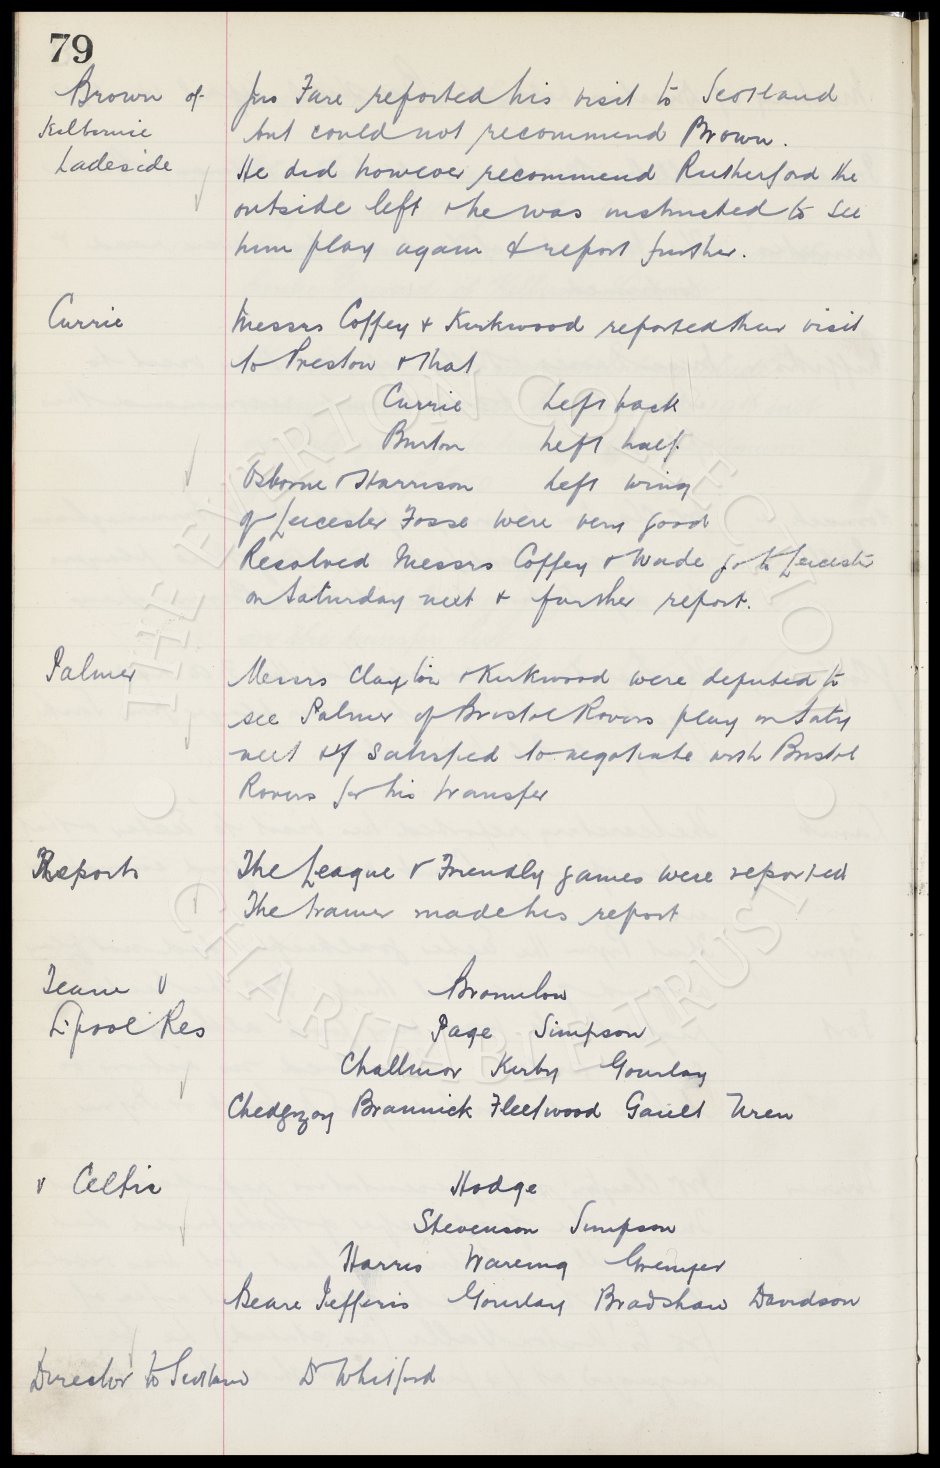 79
Brown of
Kilbirnie
Ladeside
Jno Fare reported his visit to Scotland
but could not recommend Brown.
He did however recommend Rutherford the
outside left & he was instructed to see
him play again & report further.
Currie
Messrs Coffey & Kirkwood reported their visit
to Preston & that
Currie Left back
Burton Left half.
Osborne & Harrison Left wing
of Leicester Fosse were very good
Resolved Messrs Coffey & Wade go to Leicester
on Saturday next & further report.
Palmer
Messrs Clayton & Kirkwood were deputed to
see Palmer of Bristol Rovers play on Saty
next & if satisfied to negotiate with Bristol
Rovers for his transfer
Reports
The League & Friendly games were reported
The trainer made his report
Teams v
L'pool Res
Bromilow
Page Simpson
Challinor Kirby Gourlay
Chedgzoy Brannick Fleetwood Gault Uren
v Celtic
Hodge
Stevenson Simpson
Harris Wareing Grenyer
Beare Jefferis Gourlay Bradshaw Davidson
Director to Scotland Dr Whitford
THE EVERTON COLLECTION
CHARITABLE TRUST